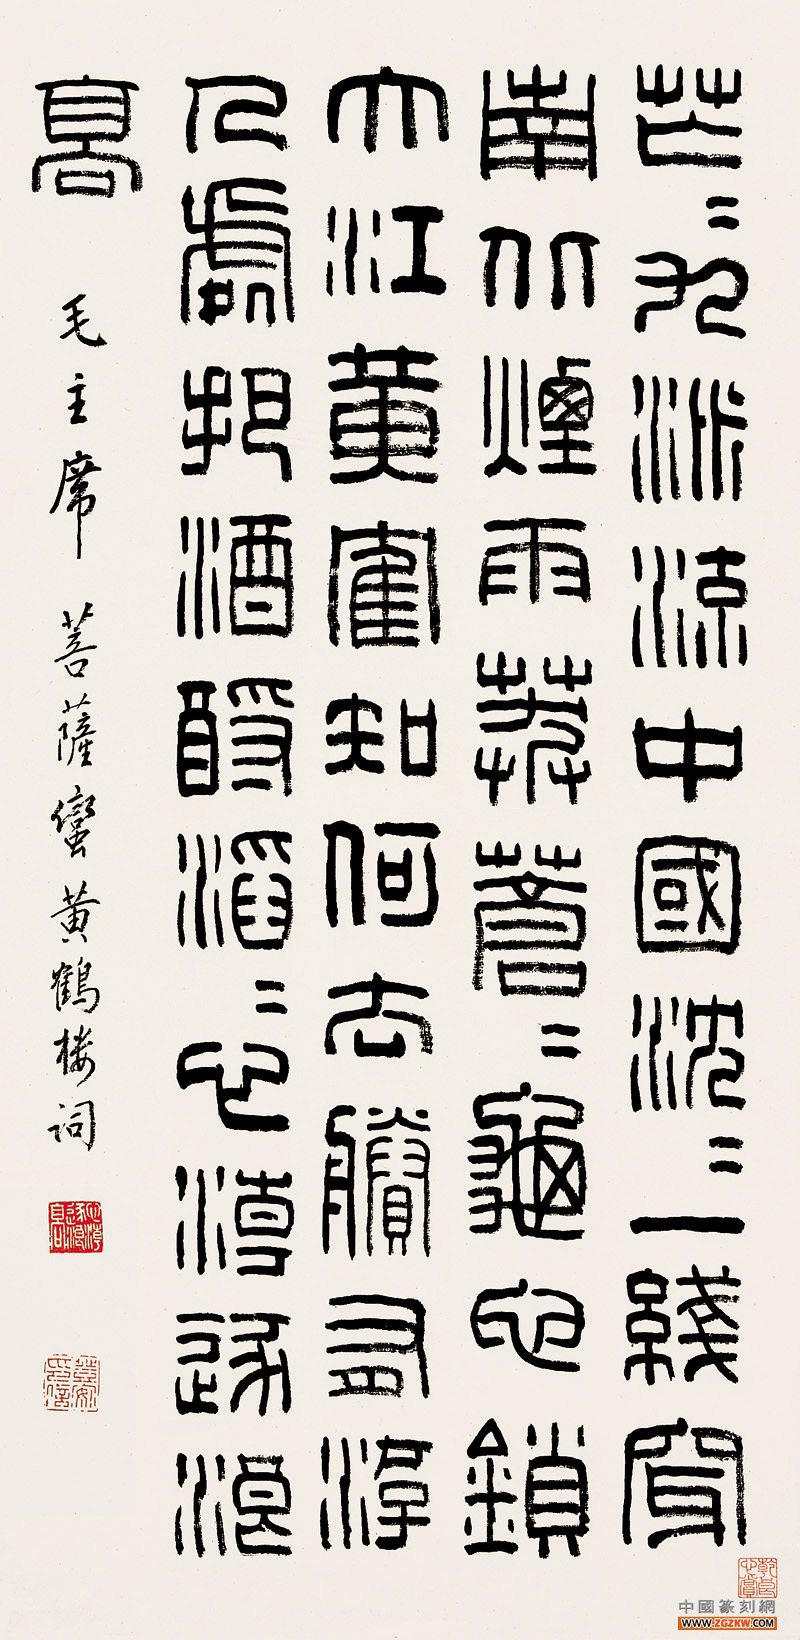 芒〻九派流中國沈〻一綫穿
南北煙雨莽蒼〻龜它鎖
大江黃隺知何去賸有游
人處把酒酹滔〻心淖逐浪
高
毛主席菩薩蠻黄鶴楼詞
心淖逐浪高
中國篆刻網
WWW.ZGZKW.COM